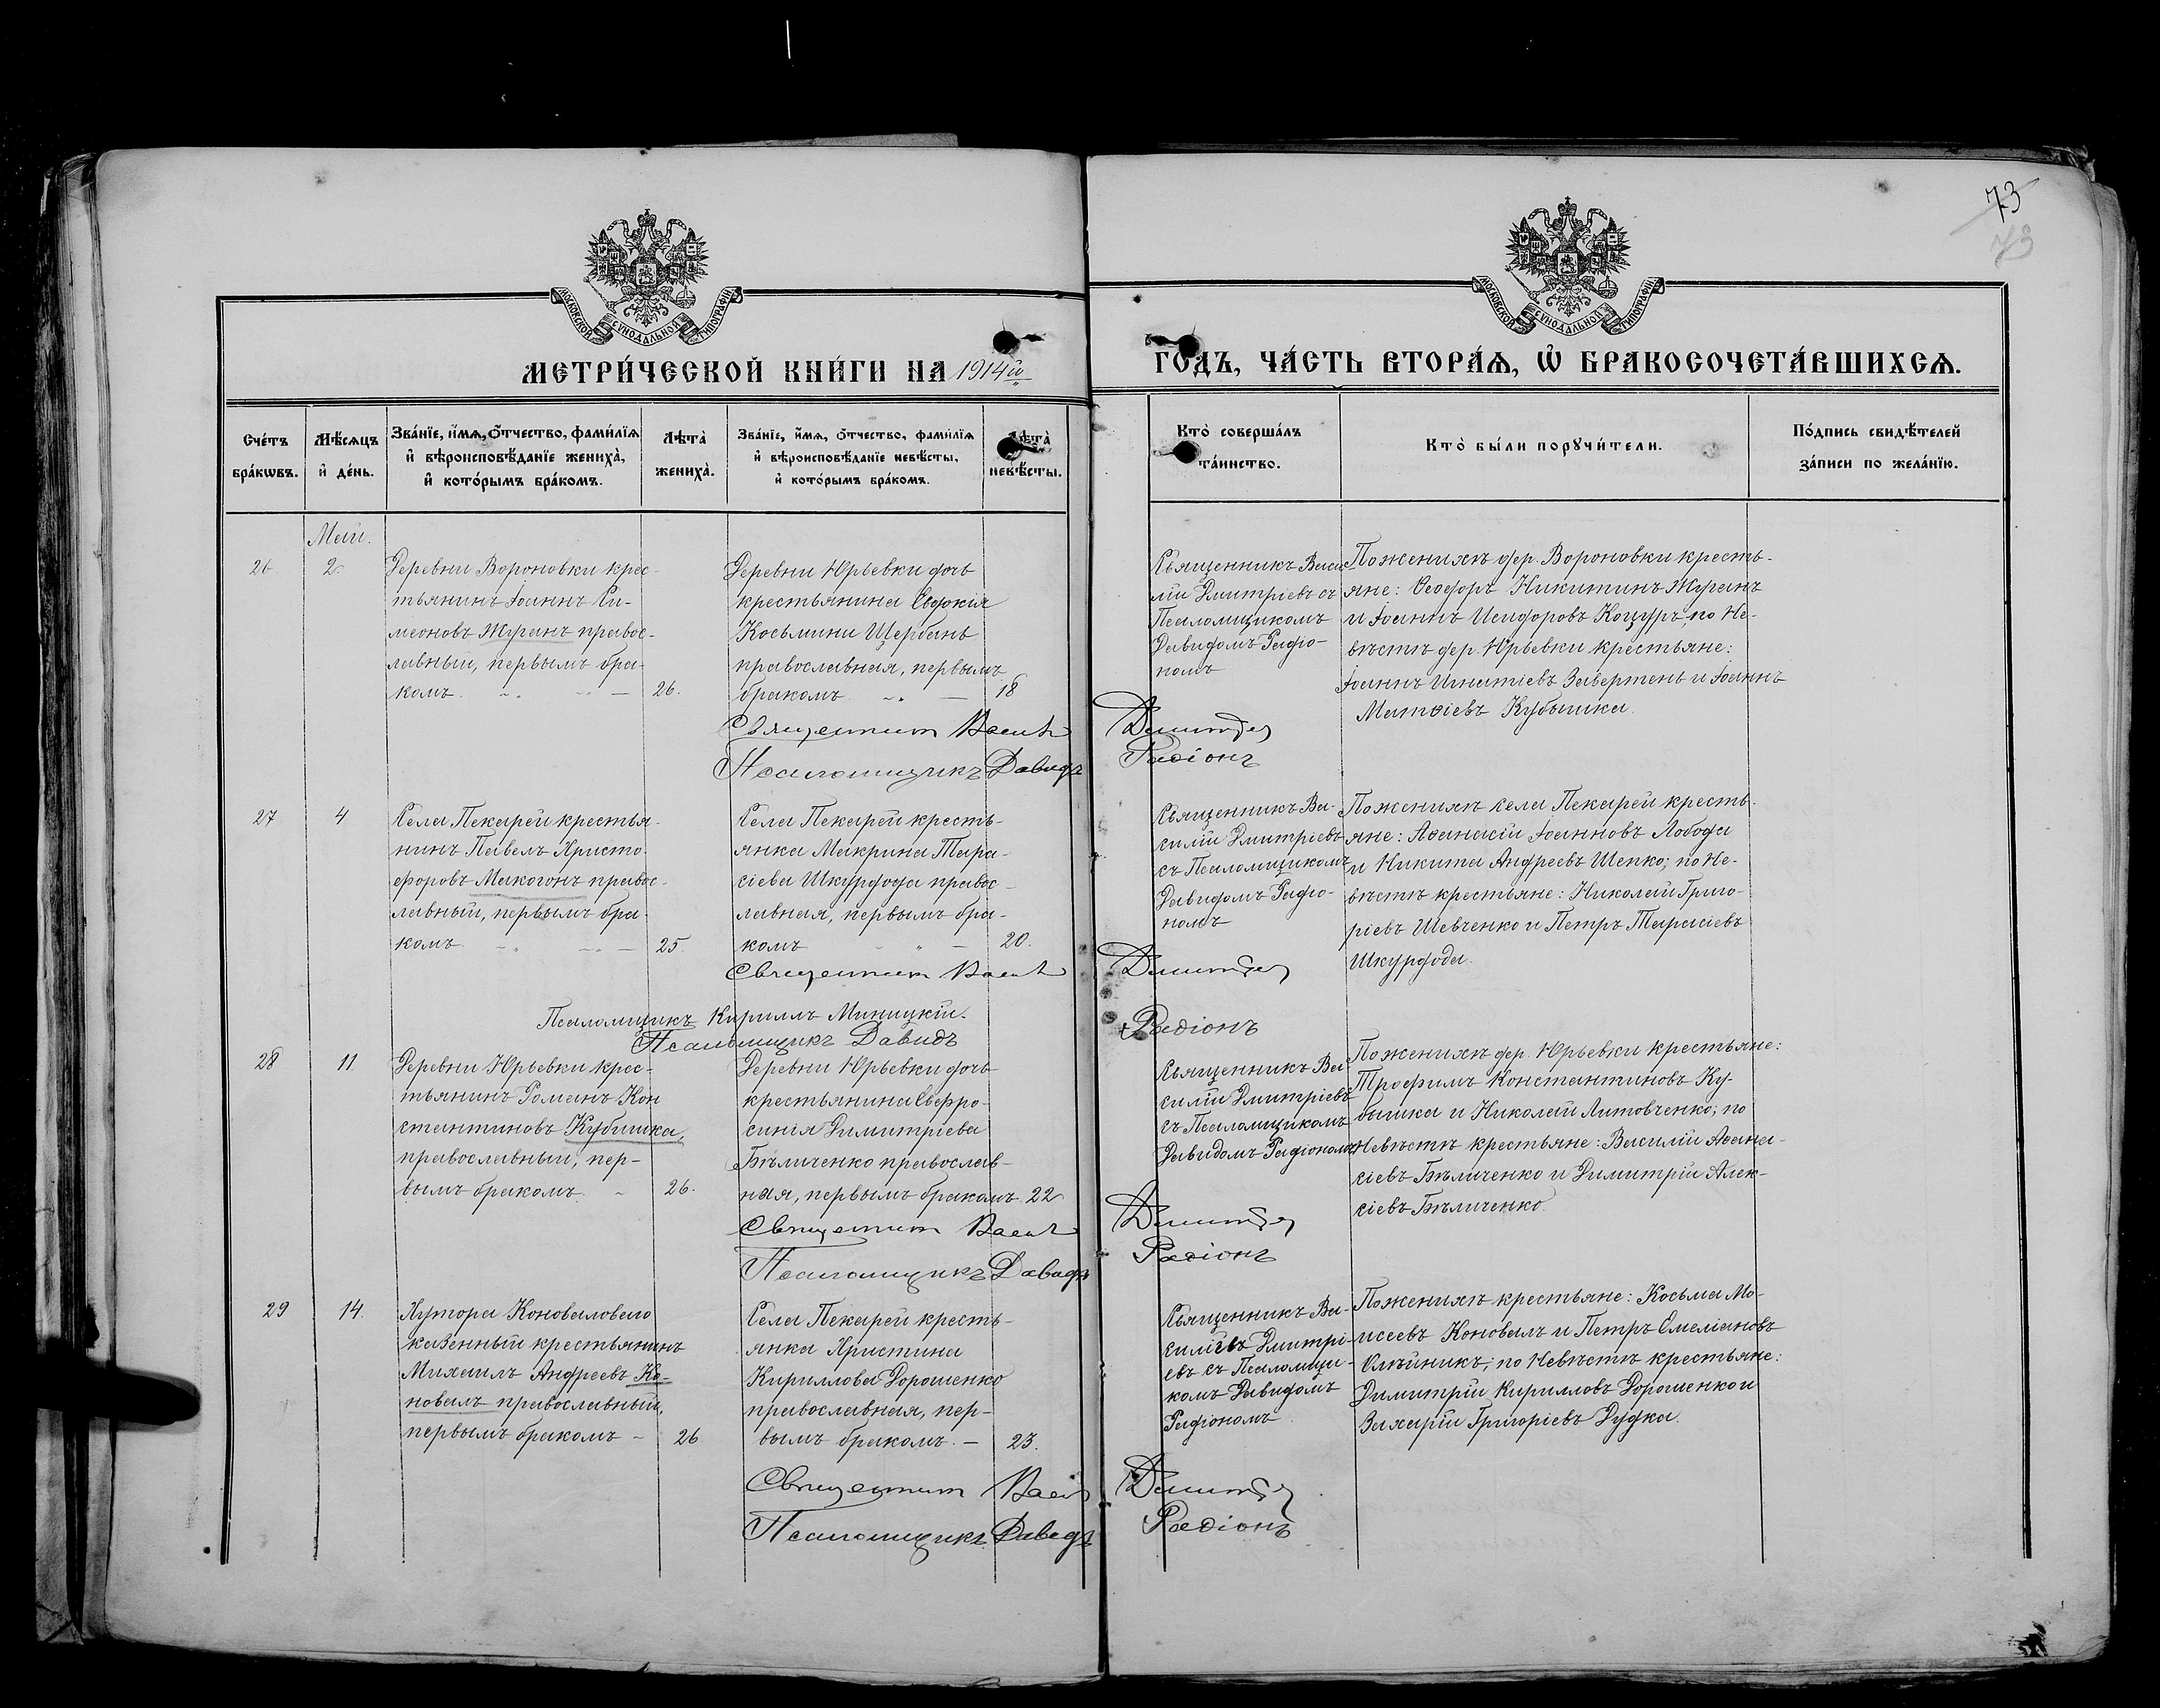 73
73
МОСКОВСКОЙ СУНОДАЛЬНОЙ ТИПОГРАФІИ
МОСКОВСКОЙ СУНОДАЛЬНОЙ ТИПОГРАФІИ
МЕТРИ́ЧЕСКОЙ КНИ́ГИ НА 1914й
ГОДЪ, ЧА́СТЬ ВТОРА́Ѧ, Ѡ҆ БРАКОСОЧЕТА́ВШИХСѦ.
Сче́тъ
бра́кѡвъ.
Мѣ́сяцъ
и҆ де́нь.
Зва́нїе, и҆́мѧ, ѻ҆́тчество, фами́лїѧ
и҆ вѣроисповѣ́данїе жениха̀,
и҆ кото́рымъ бра́комъ.
Лѣта̀
жениха̀.
Зва́нїе, и҆́мѧ, ѻ҆́тчество, фами́лїѧ
и҆ вѣроисповѣ́данїе невѣ́сты,
и҆ кото́рымъ бра́комъ.
Лѣта̀
невѣ́сты.
Кто̀ соверша́лъ
та́инство.
Кто̀ бы́ли порꙋчи́тели.
По́дпись свидѣ́телей
за́писи по жела́нїю.
Май.
26.
2.
Деревни Вороновки крес-
тьянинъ Іоаннъ Си-
меоновъ Журанъ правос-
лавный, первымъ бра-
комъ.
26.
Деревни Юрьевки дочь
крестьянина Евдокія
Косьмина Щербань
православная, первымъ
бракомъ.
18
Священникъ Васи-
лій Димитріевъ съ
Псаломщикомъ
Давидомъ Радіо-
номъ
По женихѣ дер. Вороновки кресть-
яне: Ѳеодоръ Никитинъ Журанъ
и Іоаннъ Исидоровъ Коцуръ, по Не-
вѣстѣ дер. Юрьевки крестьяне:
Іоаннъ Игнатіевъ Завертень и Іоаннъ
Матѳіевъ Кубышка.
Священник
Псаломщикъ Давидъ
Радіонъ
27
4
Села Пекарей крестья-
нинъ Павелъ Христо-
форовъ Макогонъ правос-
лавный, первымъ бра-
комъ
25
Села Пекарей кресть-
янка Макрина Тара-
сіева Шкурдода правос-
лавная, первымъ бра-
комъ
20.
Священникъ Ва-
силій Димитріевъ
съ Псаломщикомъ
Давидомъ Радіо-
номъ
По женихѣ села Пекарей кресть-
яне: Аѳанасій Іоанновъ Лобода
и Никита Андреевъ Шепко; по Не-
вѣстѣ крестьяне: Николай Григо-
ріевъ Шевченко и Петръ Тарасіевъ
Шкурдода.
Священник
Псаломщикъ Кириллъ Миницкій.
Псаломщикъ Давидъ
Радіонъ
28
11.
Деревни Юрьевки крес-
тьянинъ Романъ Кон
стантиновъ Кубышка,
православный, пер-
вымъ бракомъ.
26.
Деревни Юрьевки дочь
крестьянина Евфро-
синія Димитріева
Бѣличенко православ-
ная, первымъ бракомъ.
22
Священникъ Ва-
силій Димитріевъ
съ Псаломщикомъ
Давидомъ Радіономъ
По женихѣ дер. Юрьевки крестьяне:
Трофимъ Константиновъ Ку-
бышка и Николай Литовченко; по
Невѣстѣ крестьяне: Василій Аѳана-
сіевъ Бѣличенко и Димитрій Алек-
сіевъ Бѣличенко.
Священник
Псаломщикъ Давидъ
Радіонъ
29
14.
Хутора Коновалового
казенный крестьянинъ
Михаилъ Андреевъ Ко-
новалъ православный,
первымъ бракомъ -
26
Села Пекарей кресть-
янка Христина
Кириллова Дорошенко
православная, пер-
вымъ бракомъ. -
23.
Священникъ Ва-
силій Димитрі-
евъ съ Псаломщи-
комъ Давидомъ
Радіономъ
По женихѣ крестьяне: Косьма Мо-
исеевъ Коновалъ и Петръ Омеліановъ
Олѣйникъ; по Невѣстѣ крестьяне:
Димитрій Кирилловъ Дорошенко и
Захарій Григоріевъ Дудка.
Священник
Псаломщикъ Давидъ
Радіонъ